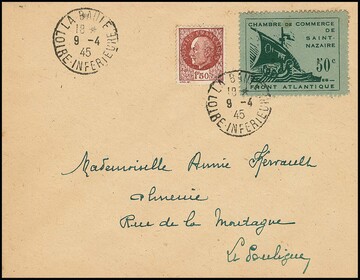 LA BAULE
18 *
9 - 4
45
LOIRE-INFERIEURE
1F50
CHAMBRE DE COMMERCE
DE
SAINT-
NAZAIRE
50c
FRONT ATLANTIQUE
LA BAULE
18 *
9 - 4
45
LOIRE-INFERIEURE
Mademoiselle Annie Kervault
Rue de la Montagne
Le Pouliguen